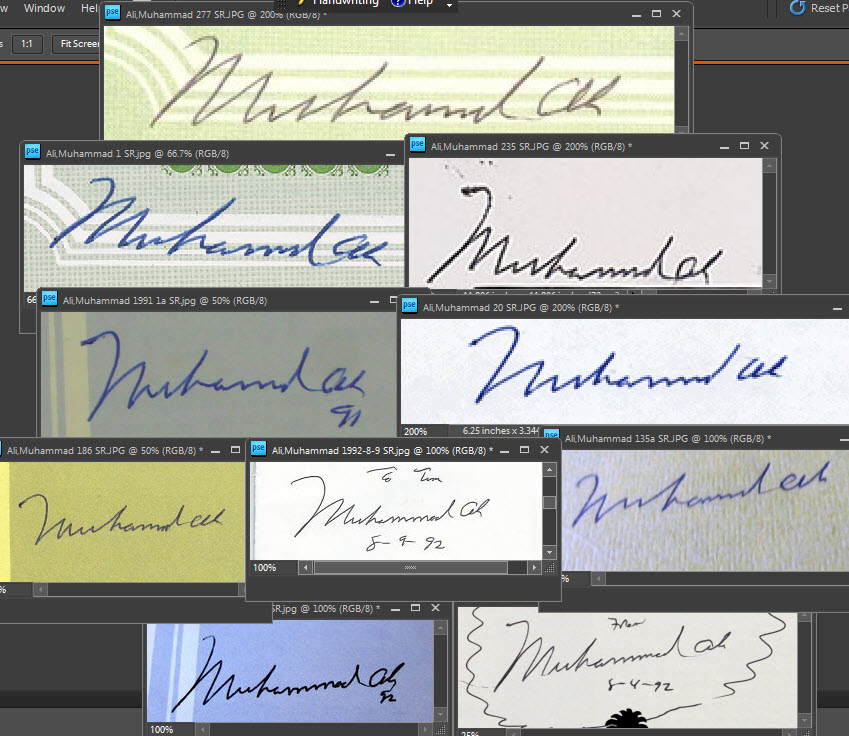 w Window Hel
Handwriting ? Help
Reset P
s 1:1 Fit Screen
pse Ali,Muhammad 277 SR.JPG @ 200% (RGB/8) *
Muhammad Ali
pse Ali,Muhammad 1 SR.jpg @ 66.7% (RGB/8)
Muhammad Ali
66
pse Ali,Muhammad 235 SR.JPG @ 200% (RGB/8) *
Muhammad Ali
pse Ali,Muhammad 1991 1a SR.jpg @ 50% (RGB/8)
Muhammad Ali
91
pse Ali,Muhammad 20 SR.JPG @ 200% (RGB/8) *
Muhammad Ali
200% 6.25 inches x 3.344
Ali,Muhammad 186 SR.JPG @ 50% (RGB/8) *
Muhammad Ali
%
pse Ali,Muhammad 1992-8-9 SR.jpg @ 100% (RGB/8) *
To Tim
Muhammad Ali
8-9-92
100%
pse Ali,Muhammad 135a SR.JPG @ 100% (RGB/8) *
Muhammad Ali
%
SR.jpg @ 100% (RGB/8) *
Muhammad Ali
92
100%
From
Muhammad Ali
8-4-92
25%